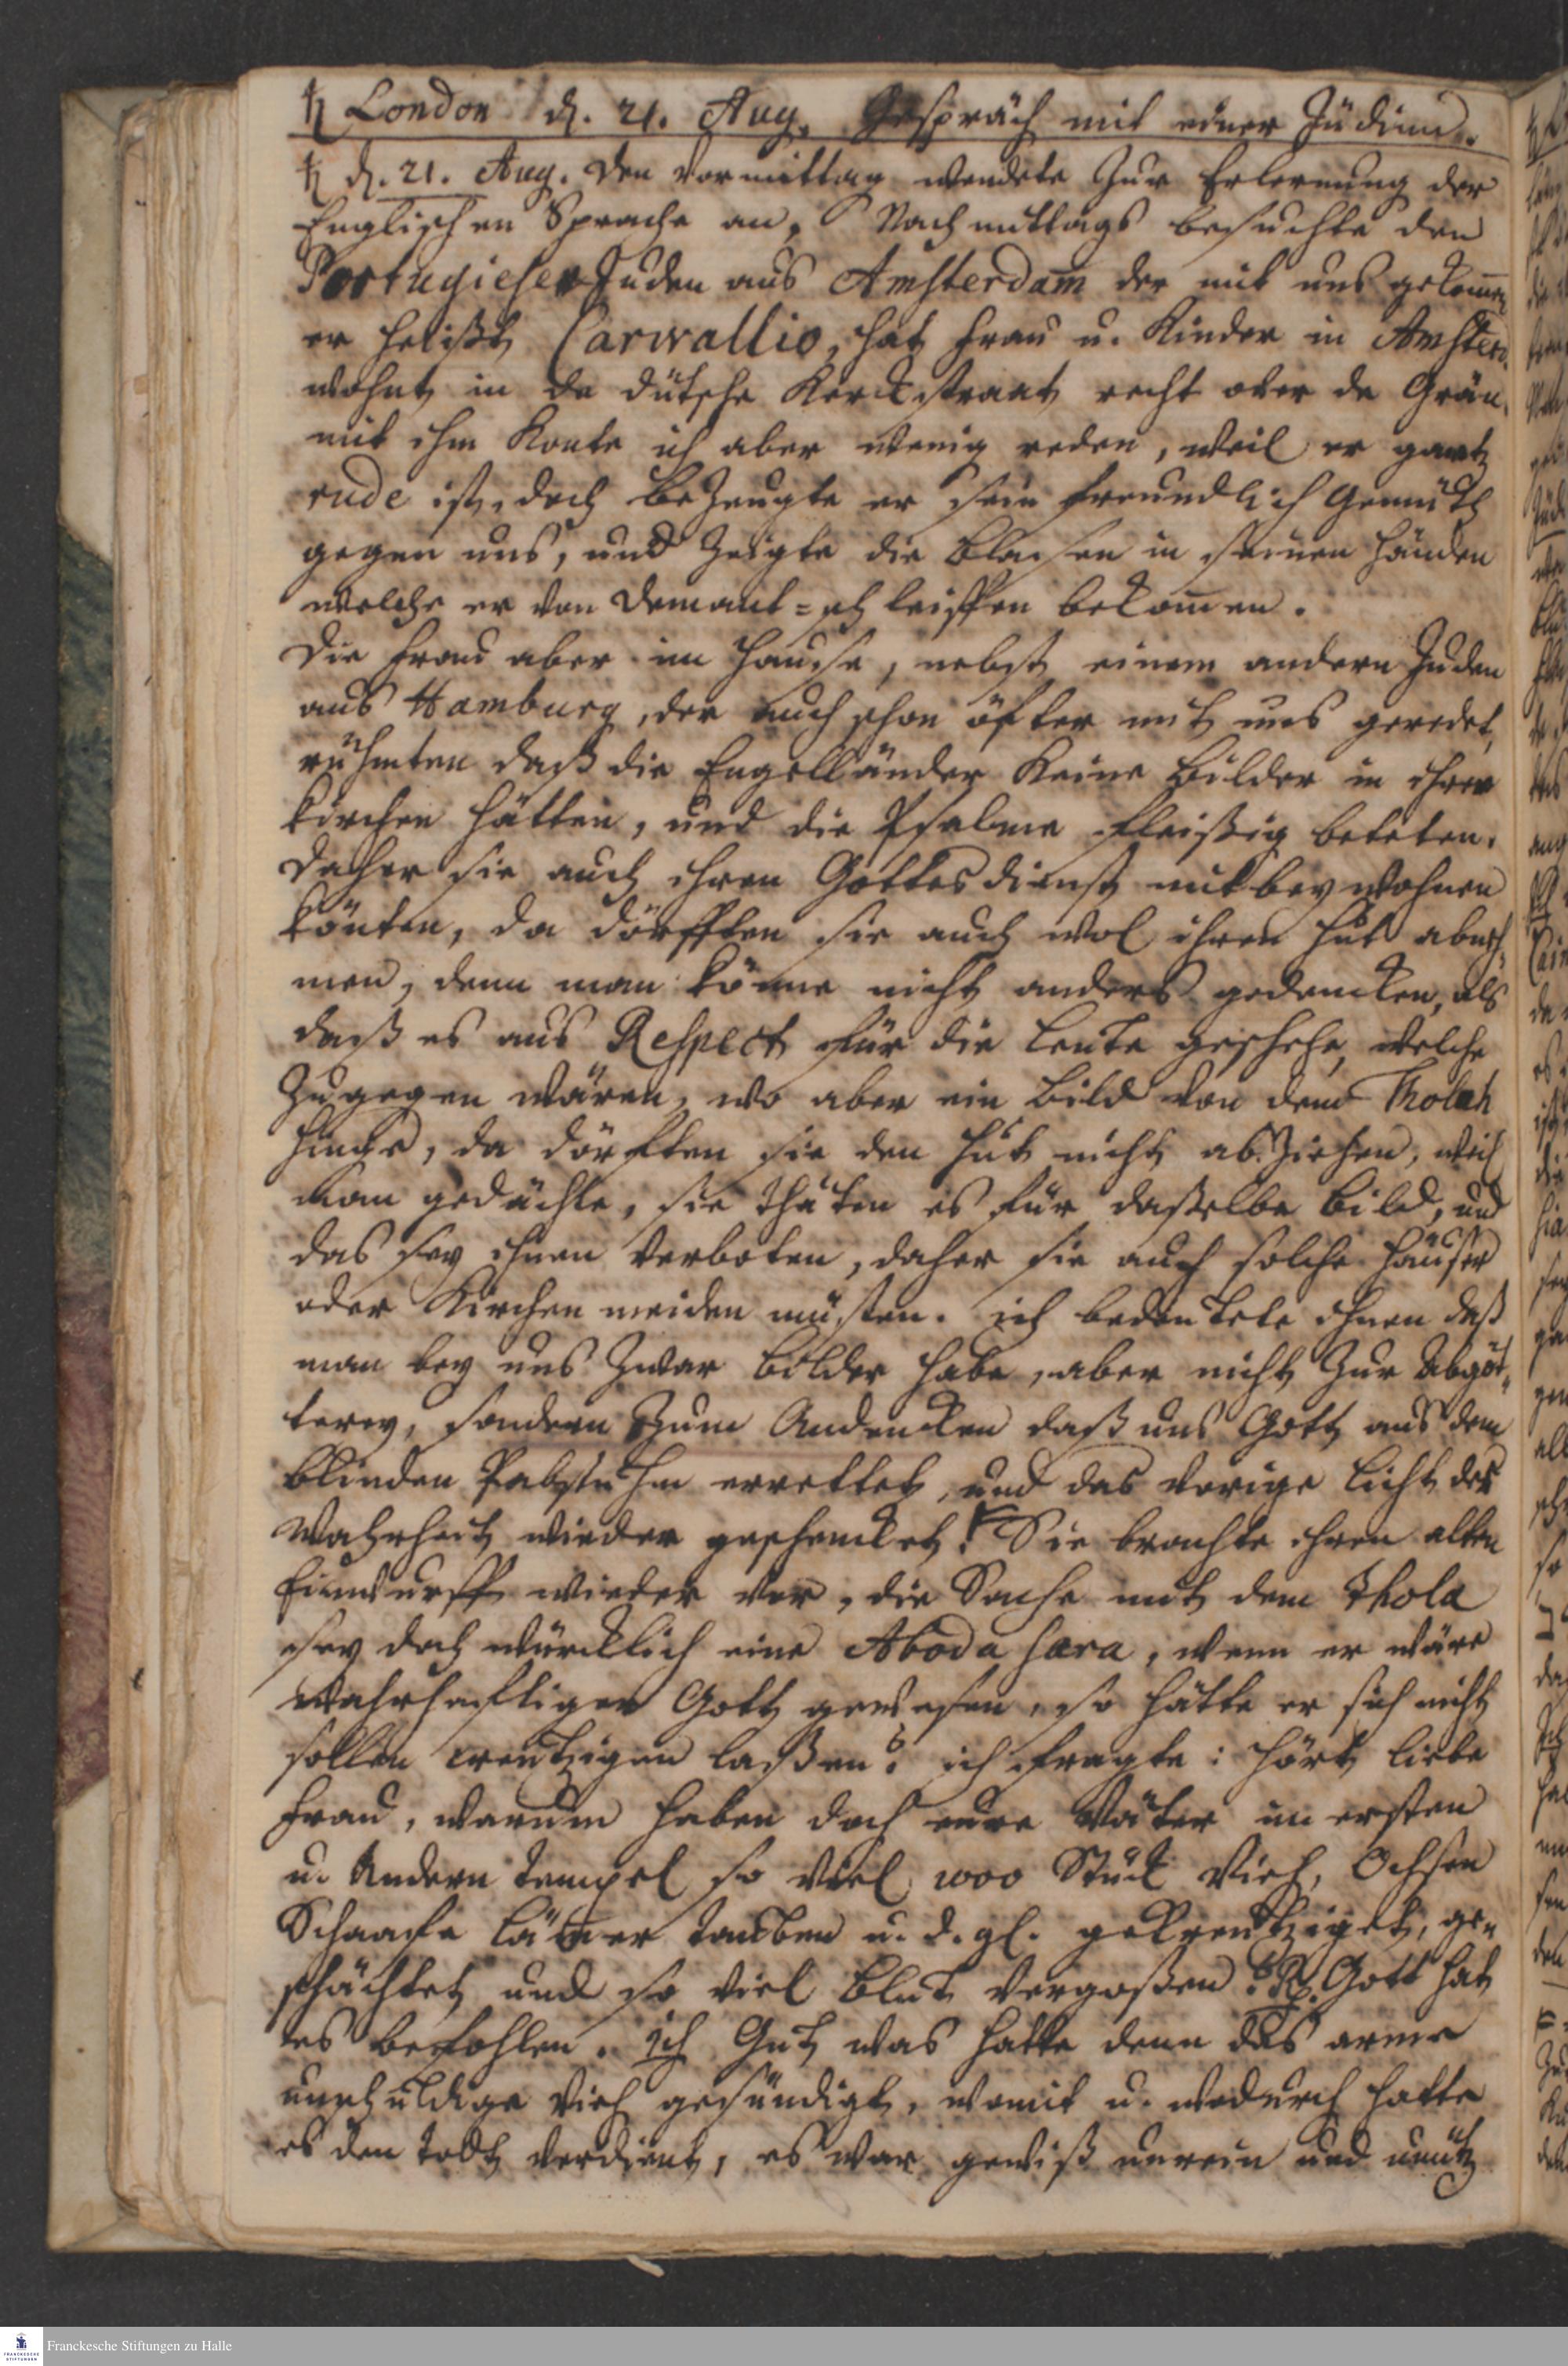 ♄ London d. 21. Aug. Gespräch mit einer Jüdinn.
♄ d. 21. Aug. Den Vormittag wendete zur Erlernung der
Englischen Sprache an, Nachmittags besuchte den
Portugiesen Juden aus Amsterdam der mit uns gekom̄en
er heißt Carvallio, hat Frau u. Kinder in Amsterd.
wohnt in da dütsche Kerckstraat recht over de Grän.
mit ihm konte ich aber wenig reden, weil er gantz
rude ist, doch bezeugte er sein freundlich Gemüth
gegen uns, und zeigte die Blasen in seinen Händen
welche er von Demant-schleiffen bekom̄en.
Die Frau aber im Hause, nebst einem andern Juden
aus Hamburg, der auch schon öfter mit uns geredet,
rühmten daß die Engelländer keine Bilder in ihren
Kirchen hätten, und die Psalmen fleißig beteten.
Daher sie auch ihren Gottesdienst mit beywohnen
könten, da dörfften sie auch wol ihren Hut abneh-
men, denn man könne nicht anders gedencken, als
daß es aus Respect für die Leute geschehe, welche
zugegen wären, wo aber ein Bild von dem Tholah
hinge, da dörften sie den Hut nicht abziehen, weil
man gedächte, sie thäten es für dasselbe Bild, und
das sey ihnen verboten, daher sie auch solche Häuser
oder Kirchen meiden müsten. ich bedeutete ihnen daß
man bey uns zwar Bilder habe, aber nicht zur Abgöt-
terey, sondern zum Andencken daß uns Gott aus dem
blinden Pabstuhm errettet, und das vorige Licht der
Wahrheit wieder geschencket! Sie brachte ihren alten
Einwurff wieder vor, die Sache mit dem Thola
sey doch würcklich eine Aboda sara, wenn er wäre
wahrhafftiger Gott gewesen, so hätte er sich nicht
sollen creutzigen laßen? ich fragte: hört liebe
Frau, warum haben doch eure Väter im ersten
u. andern Tempel so viel 1000 Stück Vieh, Ochsen
Schaafe Läm̄er Tauben u. d. gl. gekreutziget, ge-
schächtet und so viel Blut vergoßen? R. Gott hat
es befohlen. Ich Gut was hatte denn das arme
unschuldige Vieh gesündigt, womit u. wodurch hatte
es den Todt verdient, es war gewiß unrein und unütz
Franckesche Stiftungen zu Halle